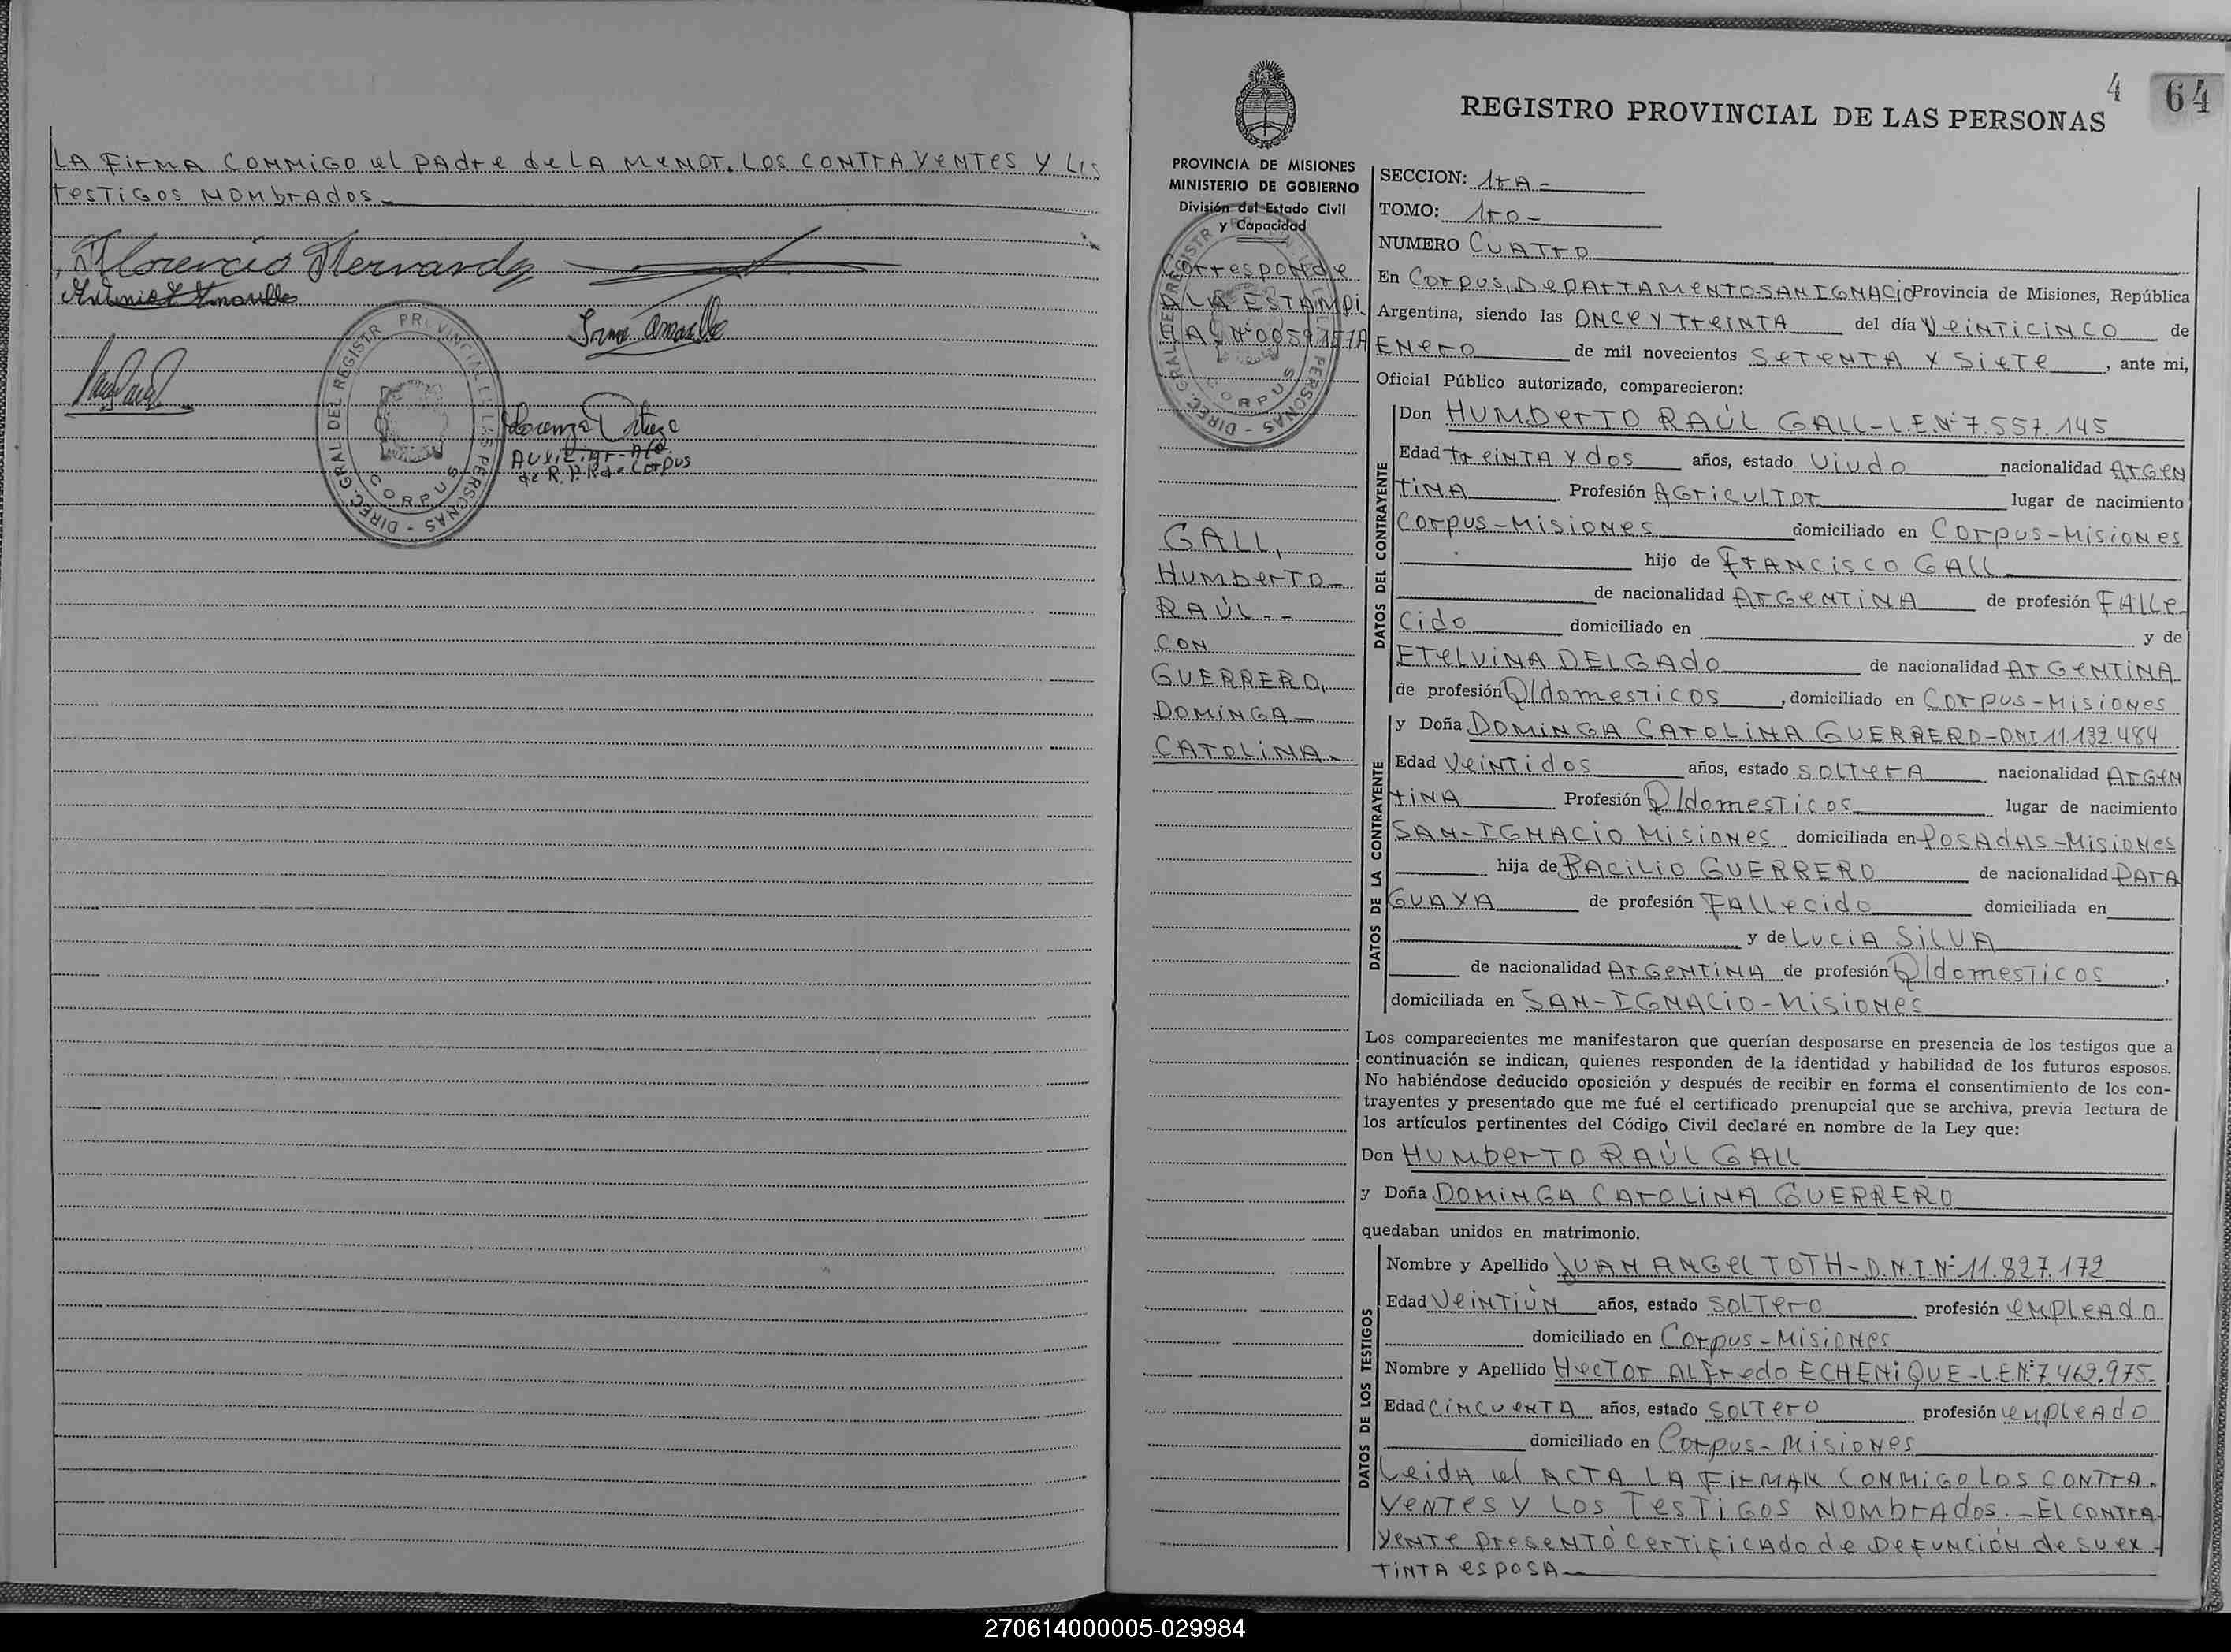 LA FirMA CONMIGO el PAdre de LA MeNOr, LOS CONTrAYeNTeS Y LOS
TeSTIGOS NOMbrAdos.-
Florencio Hernandez
Irma Amarilla
Lorenza Ortega
Auxiliar-Aco
de R.P.P. de Corpus
DIREC. GRAL DEL REGISTR PROVINCIAL DE LAS PERSONAS - CORPUS
4 64
REGISTRO PROVINCIAL DE LAS PERSONAS
PROVINCIA DE MISIONES
MINISTERIO DE GOBIERNO
División del Estado Civil
y Capacidad
Corresponde
A LA ESTAMPI
SECCION: 1rA-
TOMO: 1ro-
NUMERO CUATrO
En Corpus, DepArTAMeNTO SAN IGNACiO Provincia de Misiones, República
Argentina, siendo las ONCe Y TreINTA del día VeiNTiCiNCO de
ENero de mil novecientos SeTeNTA Y Siete, ante mi,
Oficial Público autorizado, comparecieron:
DATOS DEL CONTRAYENTE
Don HUMberTO RAÚL GALL-L.E.Nº 7.557.145
Edad treiNTA Y dos años, estado Viudo nacionalidad ArGeN
TiNA Profesión AGriCULTOr lugar de nacimiento
Corpus-MisioNes domiciliado en Corpus-MisioNes
hijo de FrANCisCO GAll
de nacionalidad ArGeNTiNA de profesión FAlle
Cido domiciliado en y de
ETelViNA DELGAdo de nacionalidad ArGeNTiNA
de profesión Q/domesticos, domiciliado en Corpus-MisioNes
DATOS DE LA CONTRAYENTE
y Doña DOMiNGA CArOLiNA GUERRERO-DNI 11.132.484
Edad VeiNTidos años, estado solterA nacionalidad ArGeN
tiNA Profesión Q/domesticos lugar de nacimiento
SAN-IGNACiO MisioNes domiciliada en POSAdAS-MisioNes
hija de BACiLiO GUERRERO de nacionalidad PArA
GUAYA de profesión FAllecido domiciliada en
y de LUCiA SiLVA
de nacionalidad ArGeNTiNA de profesión Q/domesticos,
domiciliada en SAN-IGNACiO-MisioNes
Los comparecientes me manifestaron que querían desposarse en presencia de los testigos que a
continuación se indican, quienes responden de la identidad y habilidad de los futuros esposos.
No habiéndose deducido oposición y después de recibir en forma el consentimiento de los con-
trayentes y presentado que me fué el certificado prenupcial que se archiva, previa lectura de
los artículos pertinentes del Código Civil declaré en nombre de la Ley que:
Don HUMberTO RAÚL GAll
y Doña DOMiNGA CArOLiNA GUERRERO
quedaban unidos en matrimonio.
DATOS DE LOS TESTIGOS
Nombre y Apellido JUAN ANGel TOTH-D.N.I.Nº 11.827.172
Edad VeiNTiÚN años, estado SOLTerO profesión eMPLeAdO
domiciliado en Corpus-MisioNes
Nombre y Apellido HeCTOr ALFredo ECHENiQUE-L.E.Nº 7.462.975-
Edad CiNCUeNTA años, estado SOLTerO profesión eMPleAdO
domiciliado en Corpus-MisioNes
Leida el ACTA LA FirMAN CONMiGO LOS CONTrA-
YeNTeS Y LOS TesTiGOS NOMbrAdos.-EL CONTrA
YeNTe PreseNTÓ CerTiFiCAdo de DeFUNCiÓN de su ex
TiNTA esposA-
GALL,
HUMberTO-
RAÚL--
CON
GUERRERO,
DOMiNGA-
CArOLiNA-
270614000005-029984